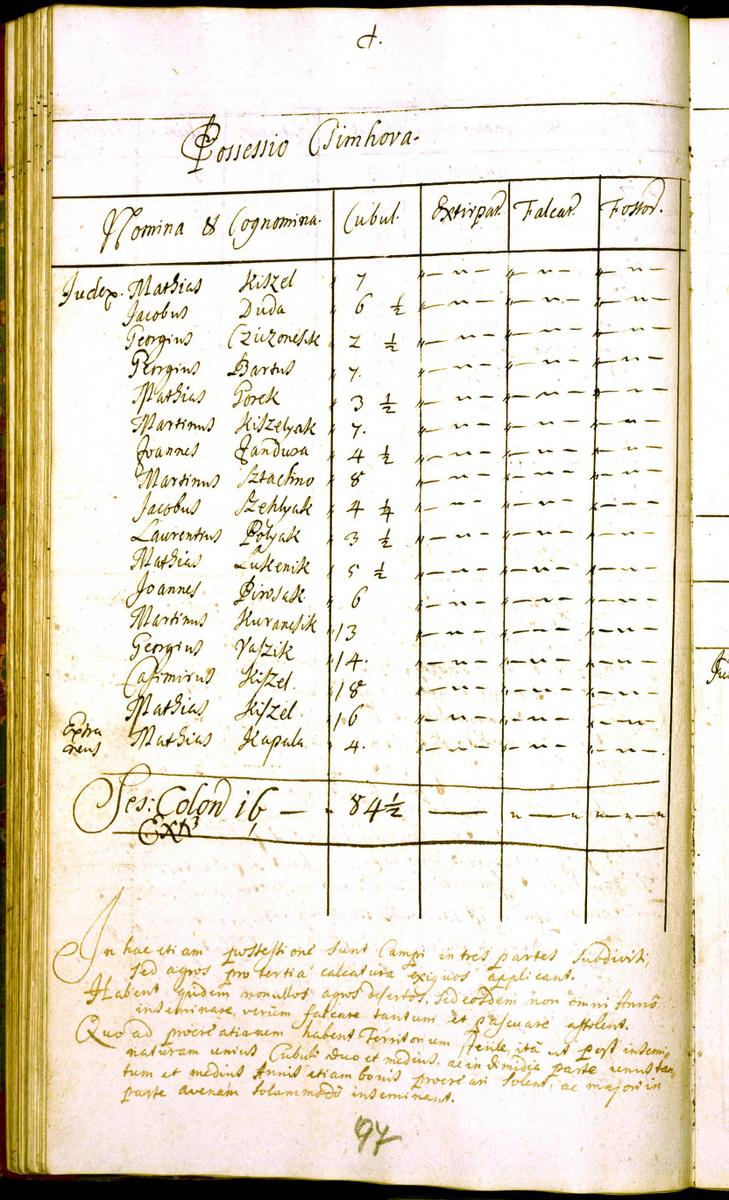 d.
Possessio Cimhova.
Nomina & Cognomina. Cubul. Extirpat. Falcat. Fossor.
Judex. Mathias Kiszel " 7 "—"— "—"— "—"—
Jacobus Duda " 6 ½ "—"— "—"— "—"—
Georgius " 2 ½ "—"— "—"— "—"—
Georgius Bartus " 7. "—"— "—"— "—"—
Mathias Gorek " 3 ½ "—"— "—"— "—"—
Martinus Kiszelyak " 7. "—"— "—"— "—"—
Joannes Jandura " 4 ½ "—"— "—"— "—"—
Martinus Sztachno " 8 "—"— "—"— "—"—
Jacobus Szehlyak " 4 "—"— "—"— "—"—
Laurentius Polyak " 3 ½ "—"— "—"— "—"—
Mathias Lukenik " 5 ½ "—"— "—"— "—"—
Joannes " 6 "—"— "—"— "—"—
Martinus Kuranesik " 13 "—"— "—"— "—"—
Georgius Vaszik " 14. "—"— "—"— "—"—
Casimirus Kiszel. " 18 "—"— "—"— "—"—
Mathias Kiszel. " 16 "—"— "—"— "—"—
Extraneus Mathias Kapala " 4. "—"— "—"— "—"—
Ses: Colon 16 — - 84½ —— "——" "—"—"
Ext
In hac etiam possessione sunt Campi in tres partes subdivisi,
sed agros pro tertia calcatura exiquos applicant.
Habent quidem nonullos agros desertos, sed eosdem non omni Anno
inseminare, verum falcare tantum et pascuare assolent.
Quo ad procreationem habent Territorium sterile, ità ut post insemi-
naturam unius Cubuli duo et medius, ac in dimidia parte unus tan-
tum et medius Annis etiam bonis procreari solent, ac majori in
parte avenam solummodo inseminant.
97
Ju